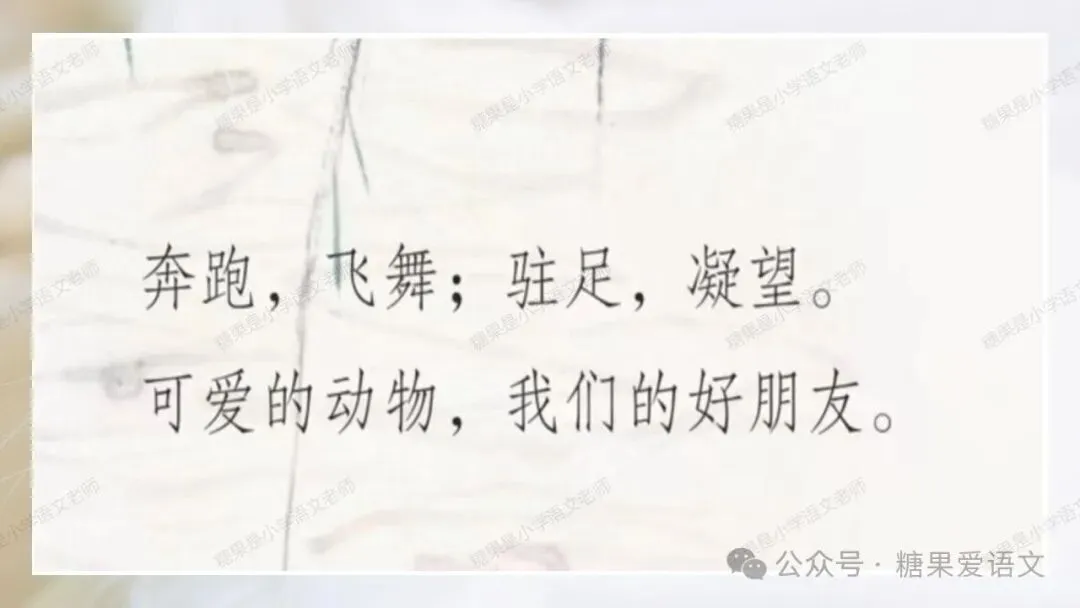 奔跑，飞舞；驻足，凝望。
可爱的动物，我们的好朋友。
糖果是小学语文老师
公众号·糖果爱语文